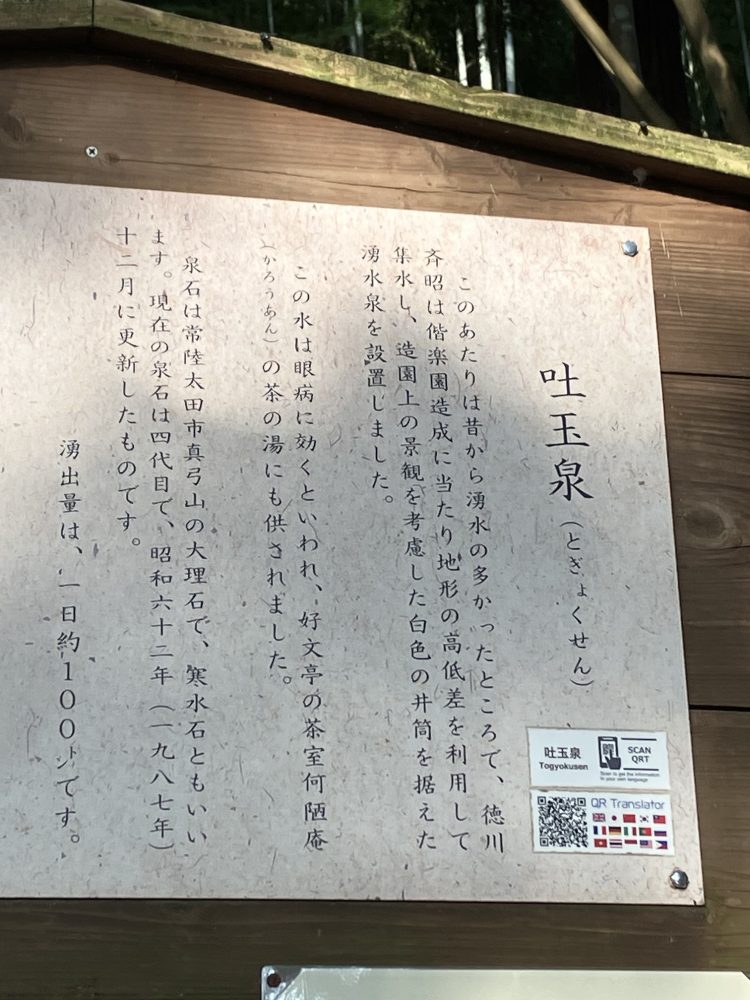 吐玉泉（とぎょくせん）
このあたりは昔から湧水の多かったところで、徳川
斉昭は偕楽園造成に当たり地形の高低差を利用して
集水し、造園上の景観を考慮した白色の井筒を据えた
湧水泉を設置しました。
この水は眼病に効くといわれ、好文亭の茶室何陋庵
（かろうあん）の茶の湯にも供されました。
泉石は常陸太田市真弓山の大理石で、寒水石ともいい
ます。現在の泉石は四代目で、昭和六十二年（一九八七年）
十二月に更新したものです。
湧出量は、一日約１００㌧です。
吐玉泉
Togyokusen
SCAN
QRT
Scan to get the information
in your own language
QR Translator